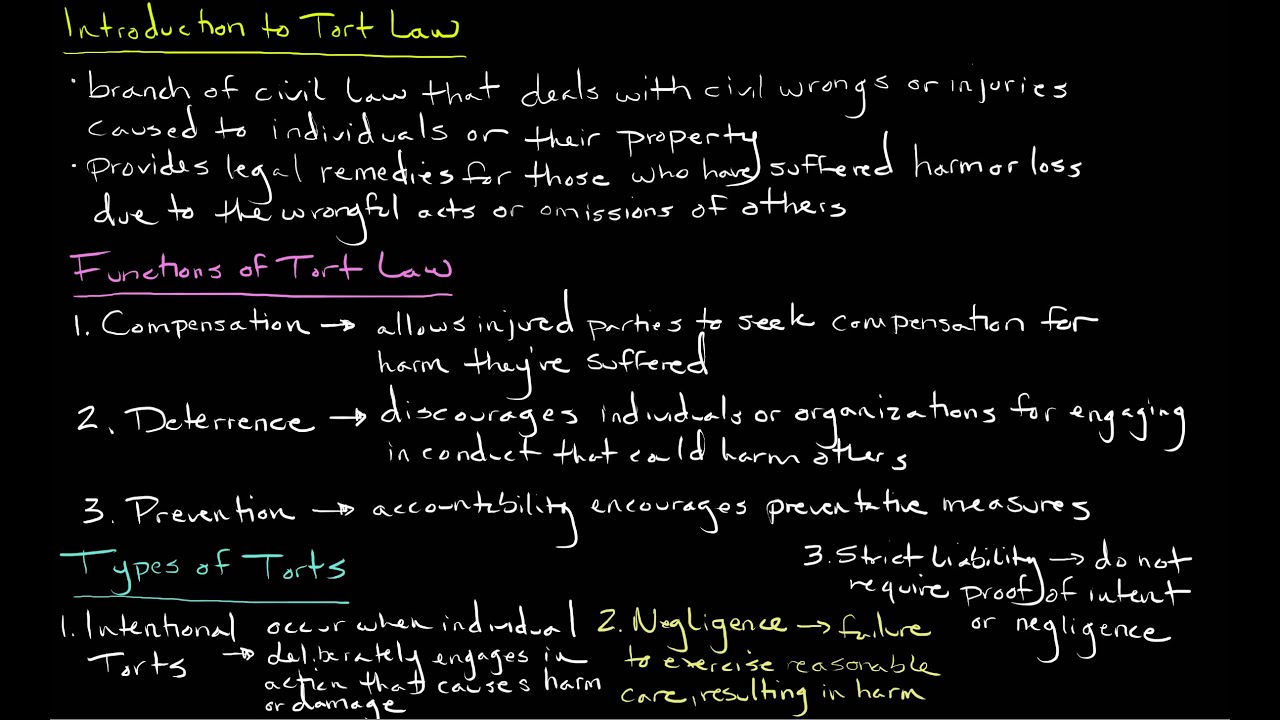 Introduction to Tort Law
· branch of civil law that deals with civil wrongs or injuries
caused to individuals or their property
· provides legal remedies for those who have suffered harm or loss
due to the wrongful acts or omissions of others
Functions of Tort Law
1. Compensation → allows injured parties to seek compensation for
harm they've suffered
2. Deterrence → discourages individuals or organizations for engaging
in conduct that could harm others
3. Prevention → accountability encourages preventative measures
Types of Torts
1. Intentional
Torts →
occur when individual
deliberately engages in
action that causes harm
or damage
2. Negligence → failure
to exercise reasonable
care, resulting in harm
3. Strict liability → do not
require proof of intent
or negligence